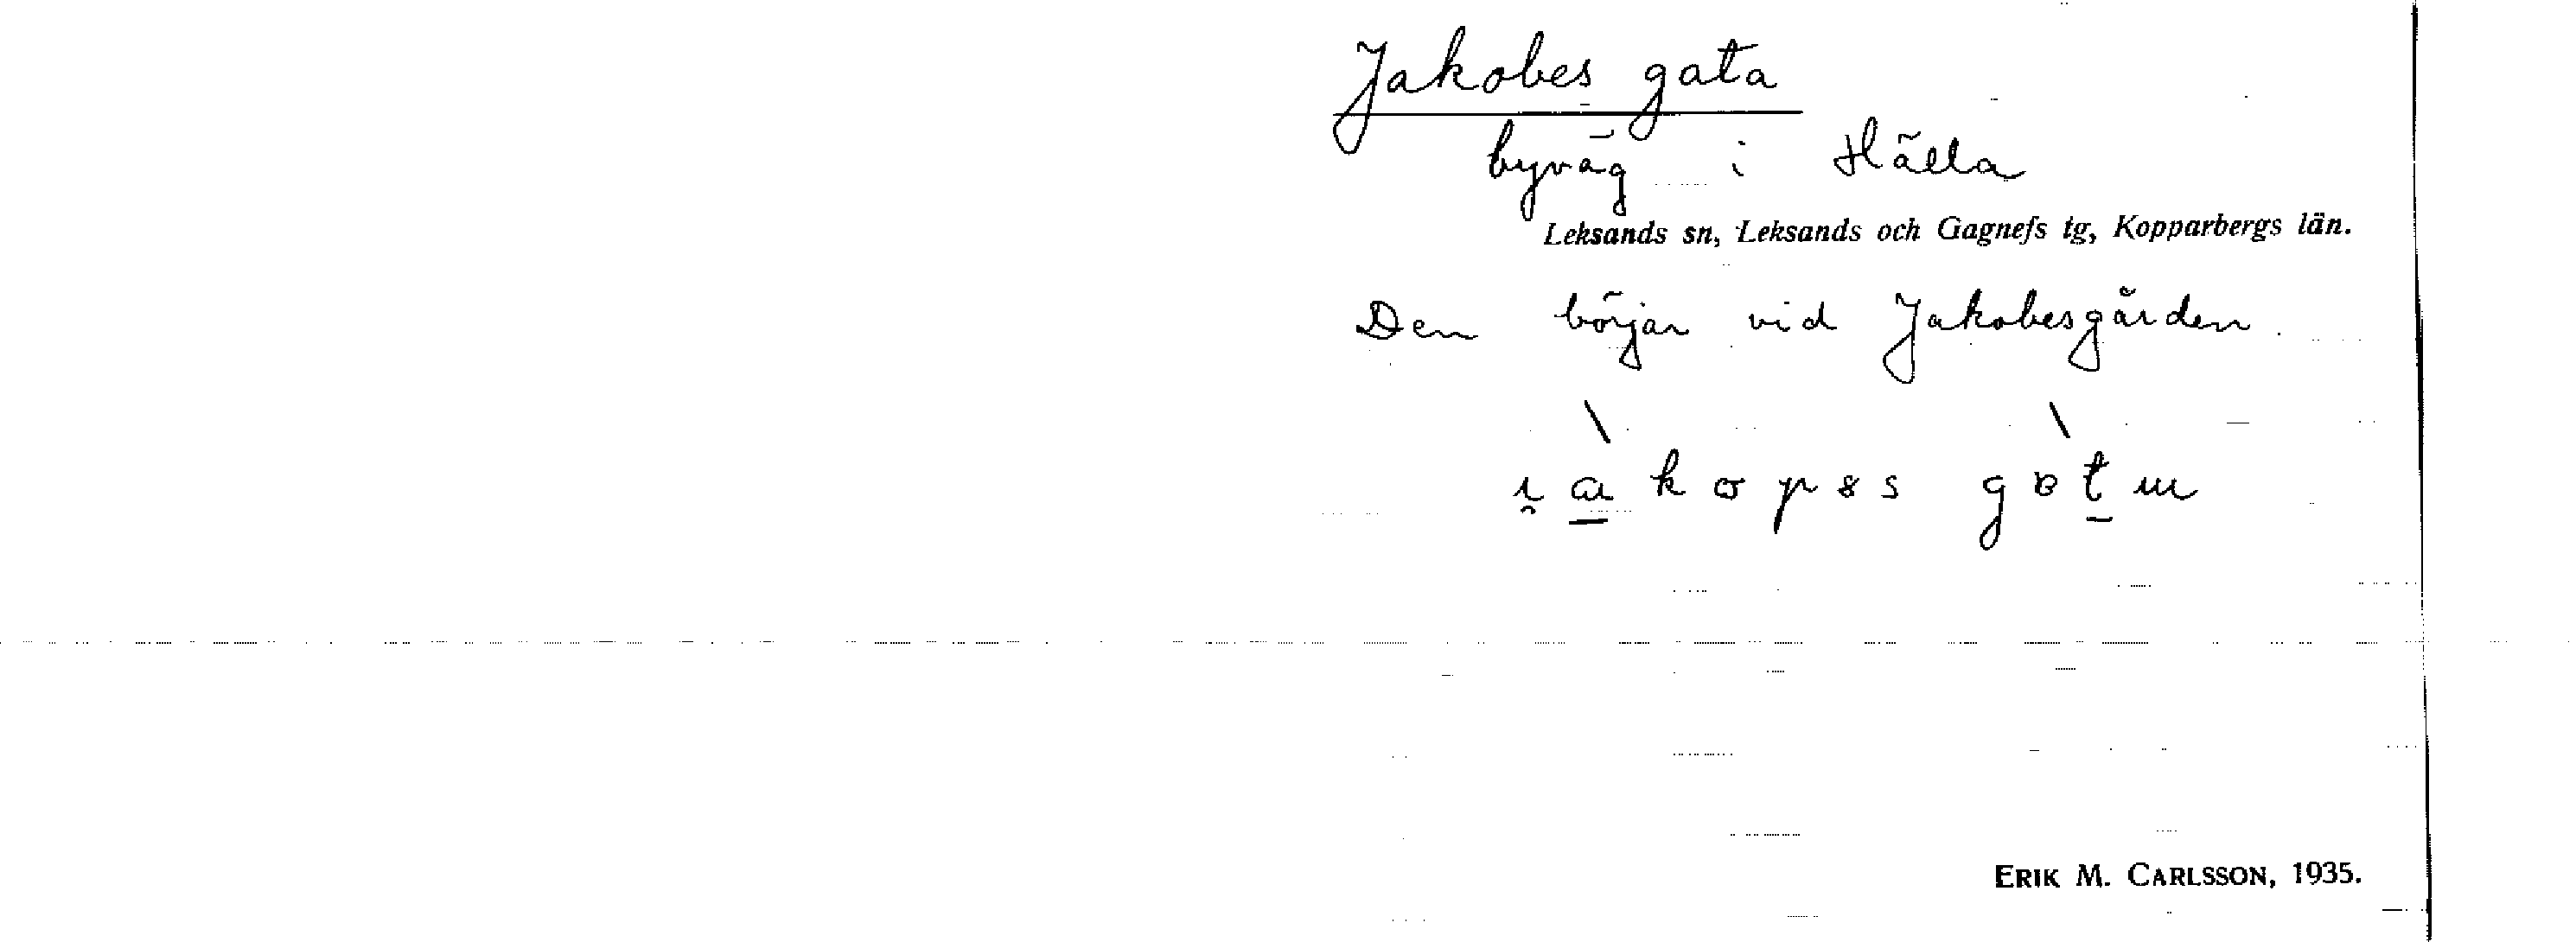 Jakobes gata
byväg i Hälla
Leksands sn, Leksands och Gagnefs tg, Kopparbergs län.
Den börjar vid Jakobesgården.
ERIK M. CARLSSON, 1935.